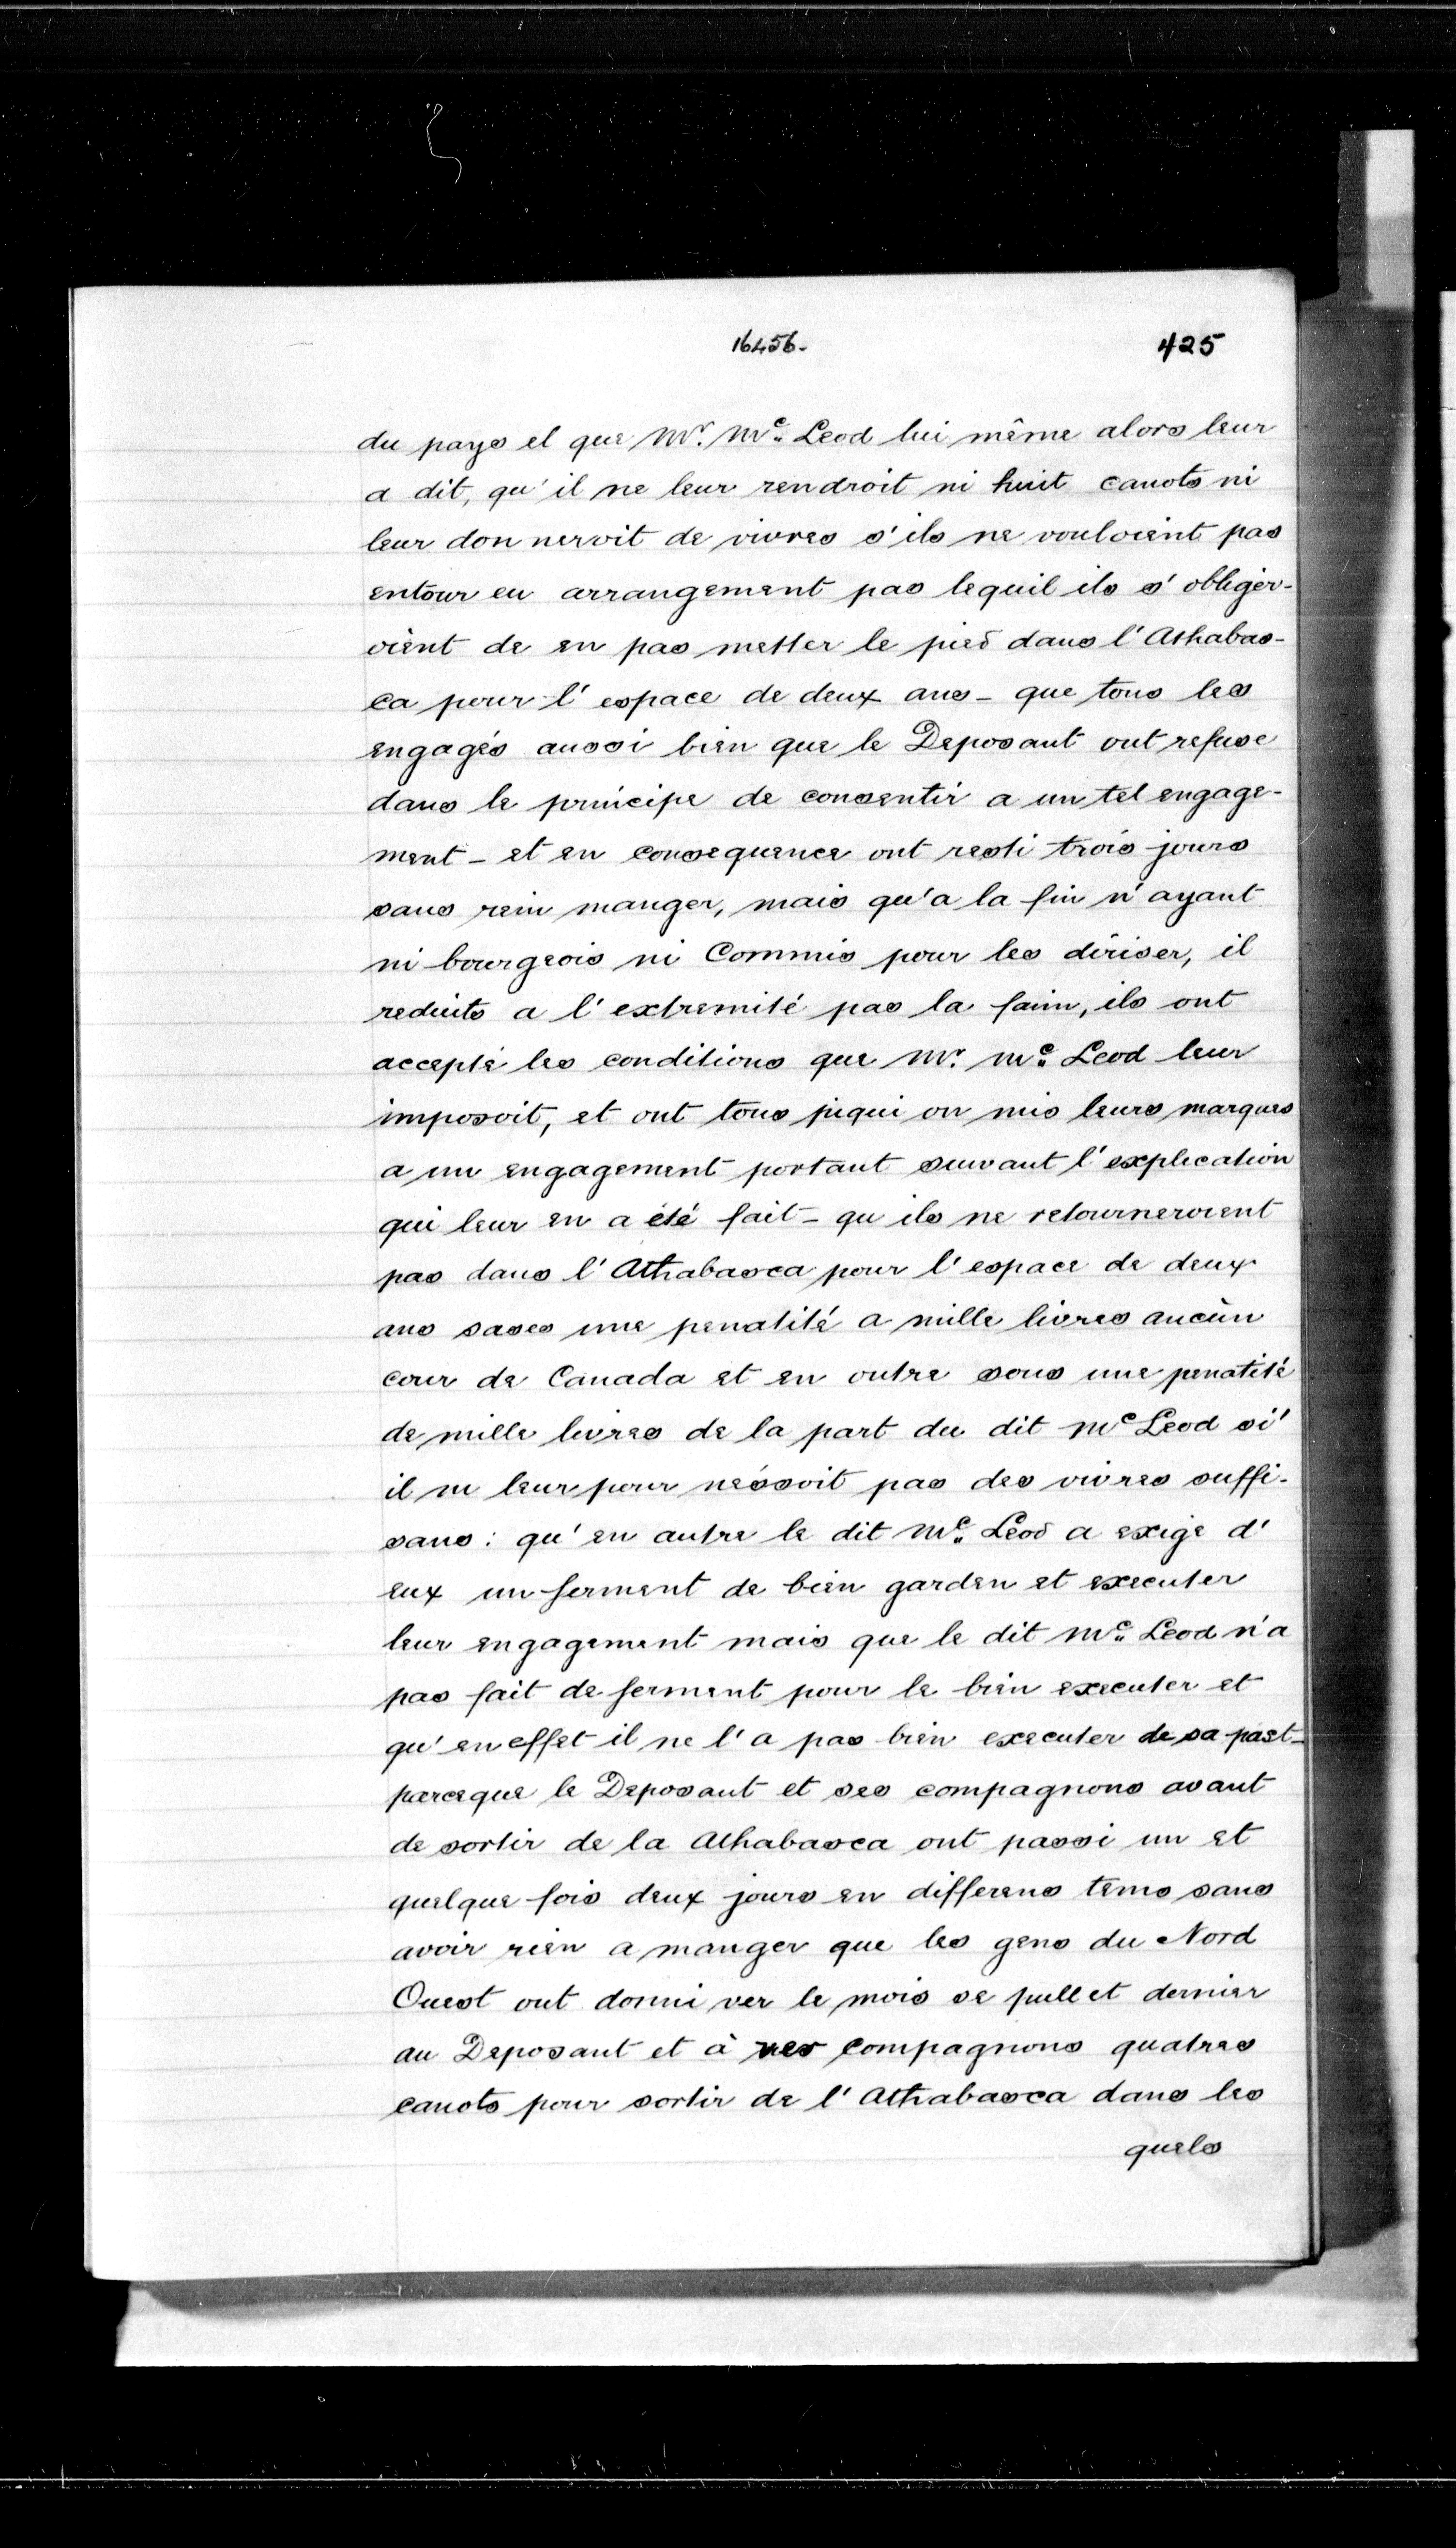 16456.
425
du pays el que Mr. Mc. Leod lui même alors leur
a dit, qu' il ne leur rendroit ni huit canots ni
leur don neroit de vivres s' ils ne vouloient pas
entour eu arrangement pas lequil ils s' obliger-
oient de en pas metter le pied dans l' Athabas-
ca pour l' espace de deux ans - que tous les
engagés aussi bien que le Deposant ont refuse
dans le principe de consentir a un tel engage-
ment - et en consequence ont resti trois jours
sans rein manger, mais qu'a la fin n' ayant
ni bourgeois ni Commis pour les diriser, il
reduits a l' extremité pas la faim, ils ont
accepté les conditions que Mr. Mc. Leod leur
imposoit, et ont tous piqui on mis leurs marques
a un engagement portant suivant l' explication
qui leur en a été fait - qu ils ne retourneroient
pas dans l' Athabasca pour l' espace de deux
ans sases une penatité a mille livres aucùn
cour de Canada et en outre sous une penatité
de mille livres de la part du dit Mc Leod si'
il ni leur pour nessoit pas des vivres suffi-
sans : qu' en autre le dit Mc. Leod a exige d'
eux un serment de bien garden et executer
leur engagement mais que le dit Mc. Leod n'a
pas fait de serment pour le bien executer et
qu' en effet il ne l' a pas bien executer de sa past-
parceque le Deposant et ses compagnons avant
de sortir de la Athabasca ont passi un et
quelque fois deux jours en differens tems sans
avoir rien a manger que les gens du Nord
Ouest ont donni ver le mois se pullet dernier
au Deposant et à compagnons quatres
canots pour sortir de l' Athabasca dans les
quels